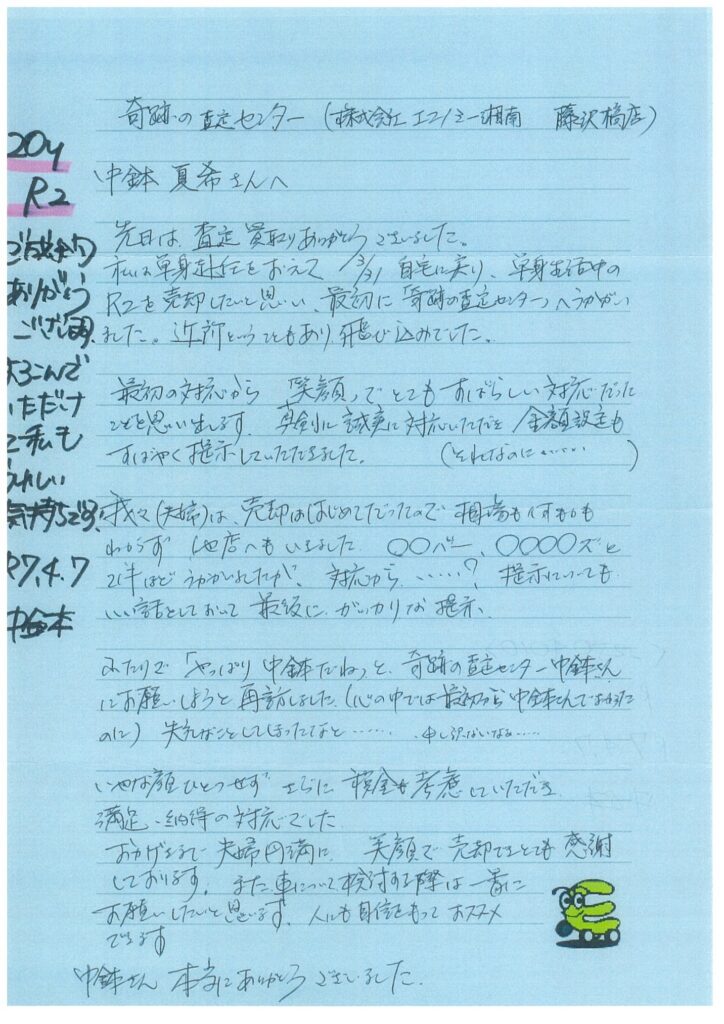 奇跡の査定センター (株式会社エコノミー湘南 藤沢橋店)
中鉢 夏希さんへ
先日は、査定買取りありがとうございました。
私は単身赴任をおえて 3/31 自宅に戻り、単身生活中の
R2を売却したいと思い、最初に「奇跡の査定センター」へうかがい
ました。近所ということもあり 飛び込みでした。
最初の対応から 「笑顔」でとてもすばらしい対応だった
ことを思い出します。真剣に誠実に対応いただき 金額設定も
すばやく提示していただきました。 (それなのに……)
我々(夫婦)は、売却ははじめてだったので 相場も何もかも
わからず 他店へもいきました ○○バー、○○○○ズと
2件ほどうかがいましたが、対応から……? 提示についても
いい話としておいて 最後に がっかりな提示、
ふたりで「やっぱり中鉢だね」と、奇跡の査定センター中鉢さん
にお願いしようと再訪しました (心の中では最初から中鉢さんでよかった
のに) 失礼なことしてしまったなと…… 申し訳ないなぁ……
いやな顔ひとつせず さらに 税金も考慮していただき
満足、納得の対応でした
おかげさまで 夫婦円満に、笑顔で売却でき とても感謝
しております。また車について検討する際は一番に
お願いしたいと思います、人にも自信をもって おススメ
できます
中鉢さん 本当にありがとうございました。
204
R2
ご成約
ありがとう
ございます。
よろこんで
いただけ
て私も
うれしい
気持ちです。
R7.4.7
中鉢